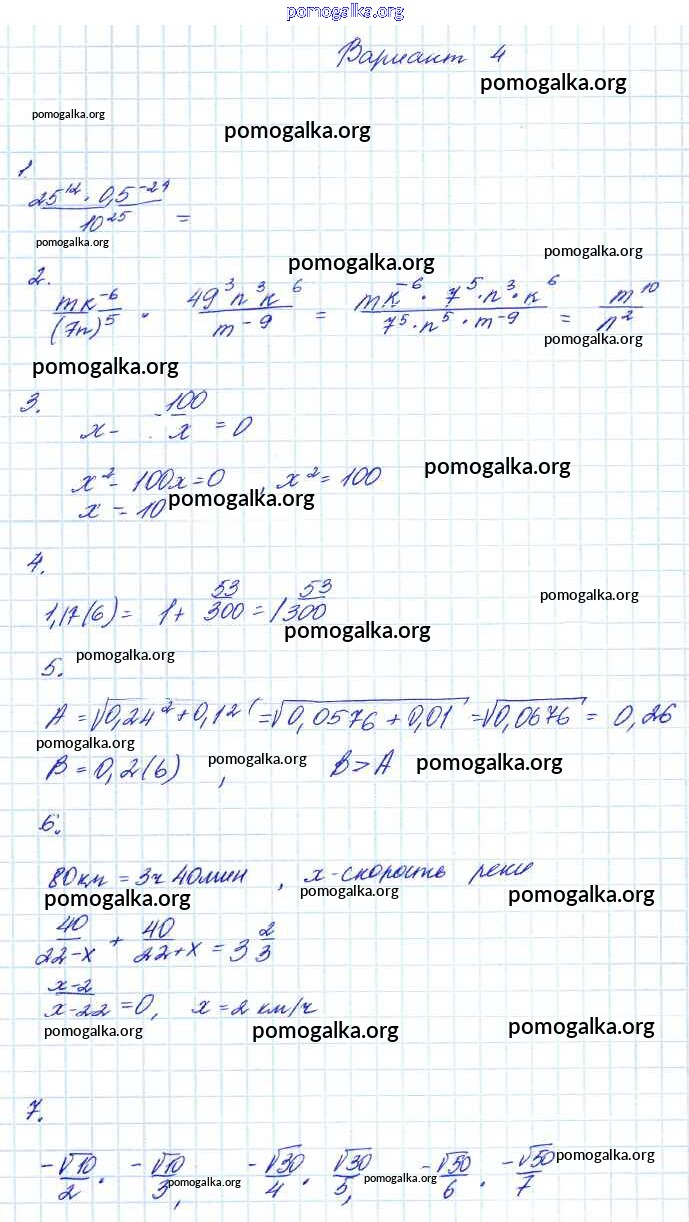 pomogalka.org
Вариант 4
pomogalka.org
pomogalka.org
pomogalka.org
1.
25^12 · 0,5^-24 / 10^25 =
pomogalka.org
pomogalka.org
pomogalka.org
2.
mk^-6 / (7n)^5 · 49^3 n^3 k^6 / m^-9 = mk^-6 · 7^5 · n^3 · k^6 / 7^5 · n^5 · m^-9 = m^10 / n^2
pomogalka.org
pomogalka.org
3.
x - 100/x = 0
x^2 - 100x = 0 , x^2 = 100
pomogalka.org
x = 10
pomogalka.org
4.
1,17(6) = 1 + 53/300 = 1 53/300
pomogalka.org
pomogalka.org
5.
pomogalka.org
A = √0,24^2 + 0,1^2 = √0,0576 + 0,01 = √0,0676 = 0,26
pomogalka.org
B = 0,2(6) , B > A
pomogalka.org
pomogalka.org
6.
80км = 3ч 40мин , x - скорость реки
pomogalka.org
pomogalka.org
pomogalka.org
40/22-x + 40/22+x = 3 2/3
x-2/x-22 = 0, x = 2 км/ч
pomogalka.org
pomogalka.org
pomogalka.org
7.
-√10/2 · -√10/3, -√30/4 · √30/5, -√50/6 · -√50/7
pomogalka.org
pomogalka.org
pomogalka.org